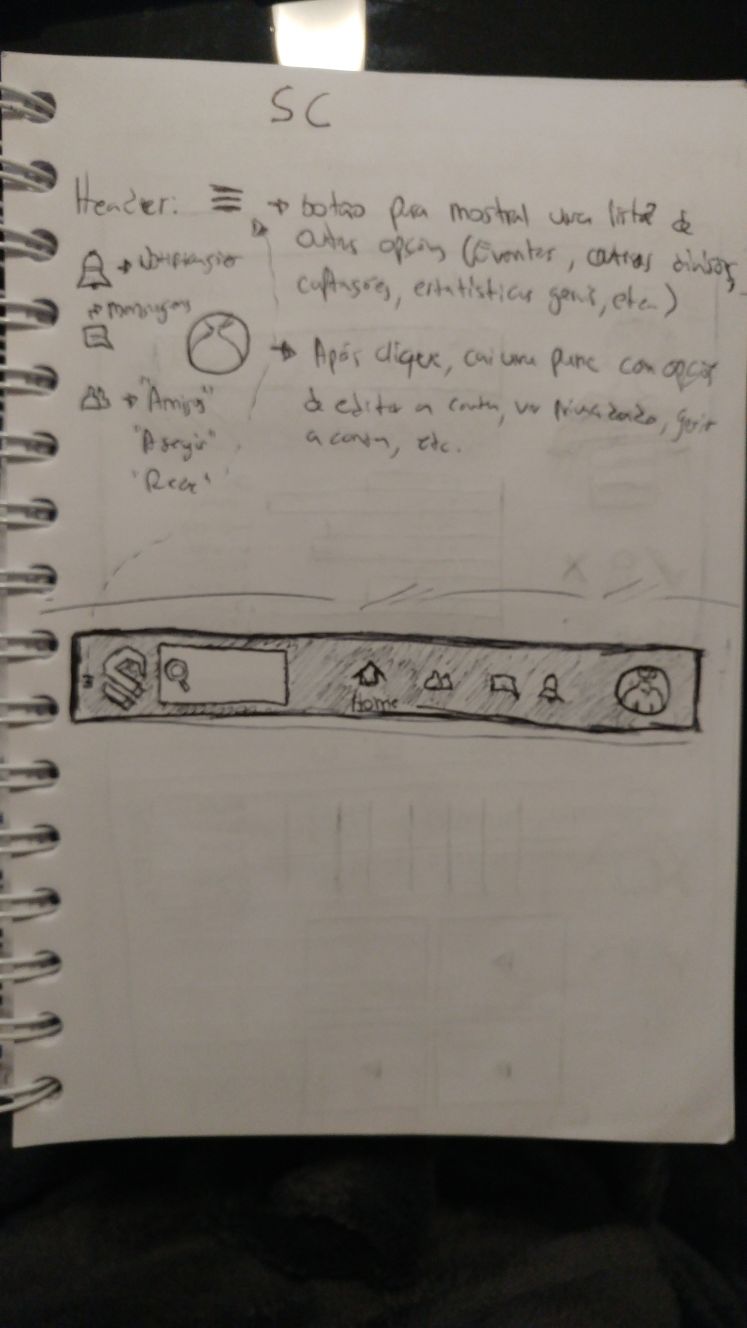 SC
Header: ≡ → botão para mostrar uma lista de
outras opções (Eventos, outras divisões,
estatísticas gerais, etc.)
→ Notificações
→ mensagens
→ Após clique, cai uma com opções
de editar a conta, ver privacidade, gerir
a conta, etc.
→ "Amigos"
"A seguir"
"Rede"
Home